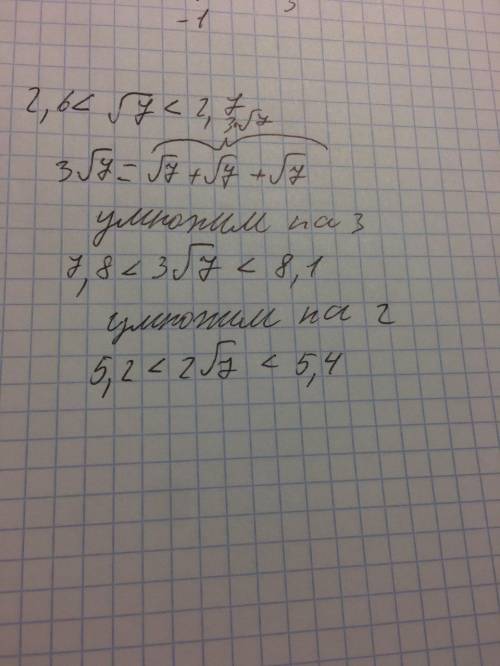 -1
2,6 < √7 < 2,7
3√7
3√7 = √7 + √7 + √7
умножим на 3
7,8 < 3√7 < 8,1
умножим на 2
5,2 < 2√7 < 5,4